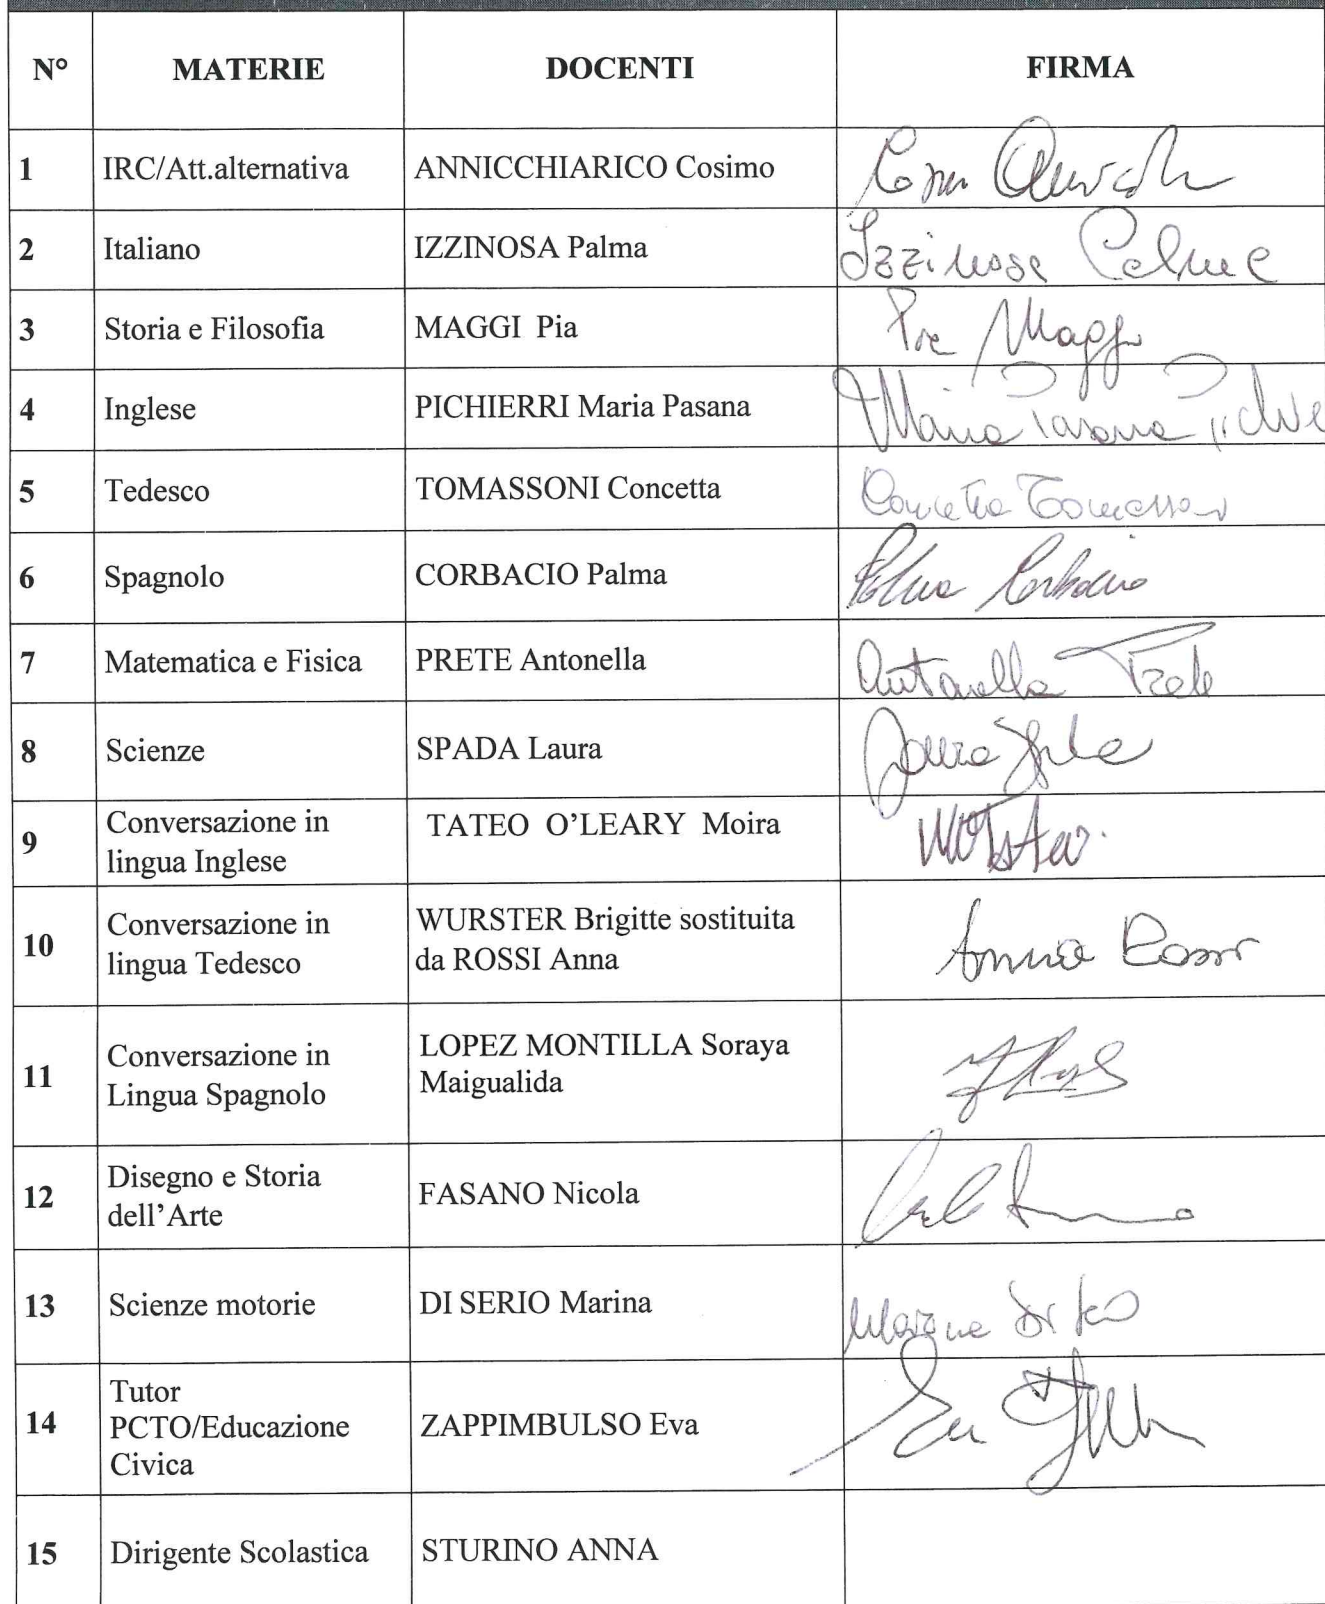 N° MATERIE DOCENTI FIRMA
1 IRC/Att.alternativa ANNICCHIARICO Cosimo
2 Italiano IZZINOSA Palma Izzinosa Palma
3 Storia e Filosofia MAGGI Pia Pia Maggi
4 Inglese PICHIERRI Maria Pasana Maria Pasana
5 Tedesco TOMASSONI Concetta Concetta Tomassoni
6 Spagnolo CORBACIO Palma Palma Corbacio
7 Matematica e Fisica PRETE Antonella Antonella Prete
8 Scienze SPADA Laura Laura Spada
9 Conversazione in
lingua Inglese TATEO O'LEARY Moira
10 Conversazione in
lingua Tedesco WURSTER Brigitte sostituita
da ROSSI Anna Anna Rossi
11 Conversazione in
Lingua Spagnolo LOPEZ MONTILLA Soraya
Maigualida
12 Disegno e Storia
dell'Arte FASANO Nicola
13 Scienze motorie DI SERIO Marina Marina Di
14 Tutor
PCTO/Educazione
Civica ZAPPIMBULSO Eva Eva
15 Dirigente Scolastica STURINO ANNA